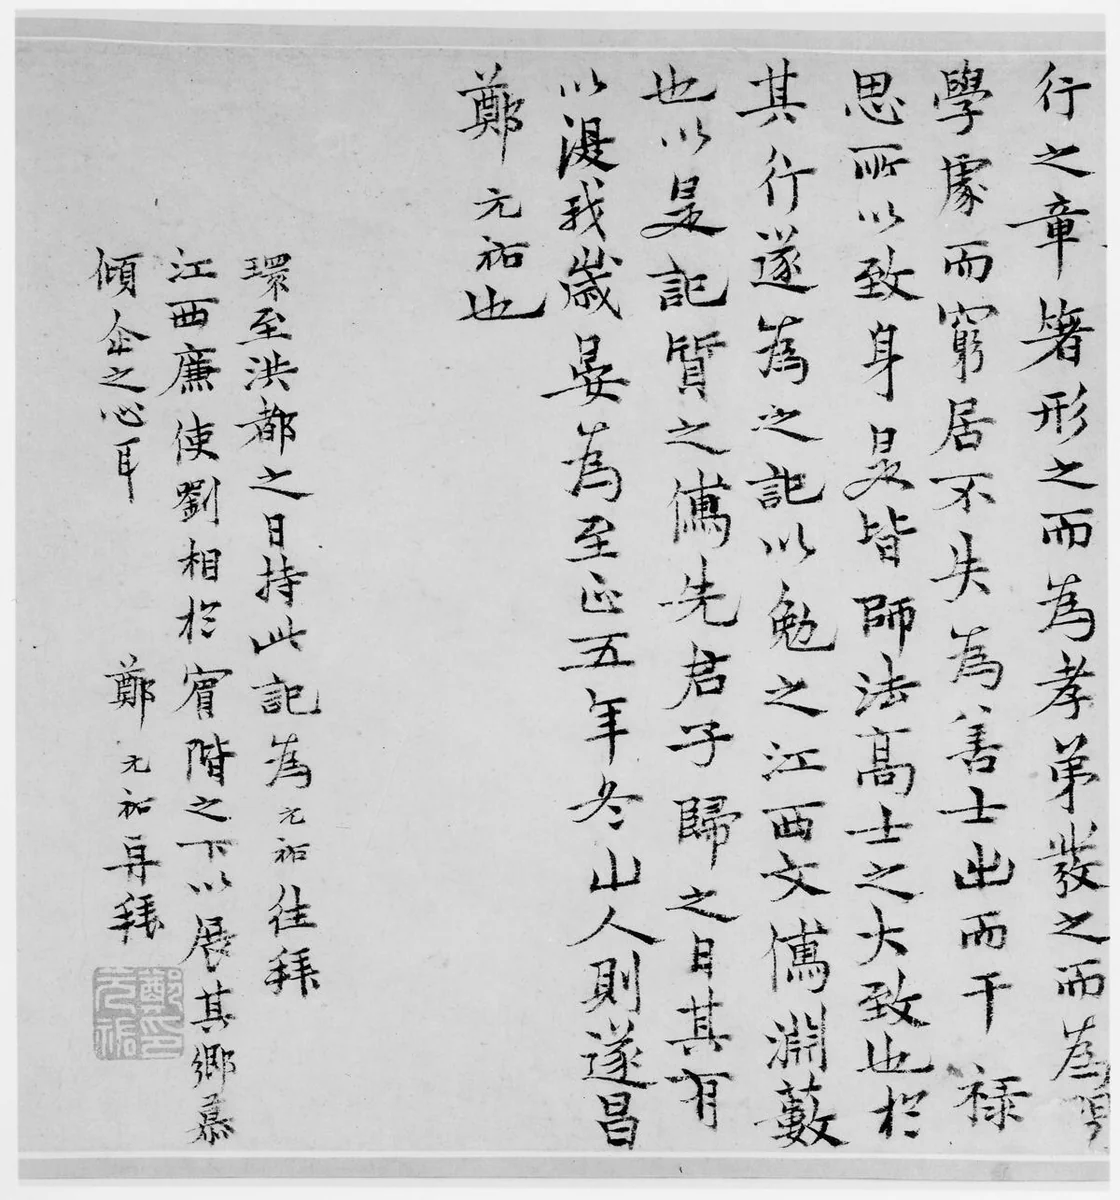 行之章箸形之而為孝弟發之而為
學處而窮居不失為善士出而干祿
思所以致身是皆師法高士之大致也於
其行遂為之記以勉之江西文儒淵藪
也以是記質之儒先君子歸之日其有
以渥我歲晏為至正五年冬山人則遂昌
鄭元祐也
環至洪都之日持此記為元祐往拜
江西廉使劉相於賓階之下以展其鄉慕
傾企之心耳 鄭元祐再拜
鄭元祐印